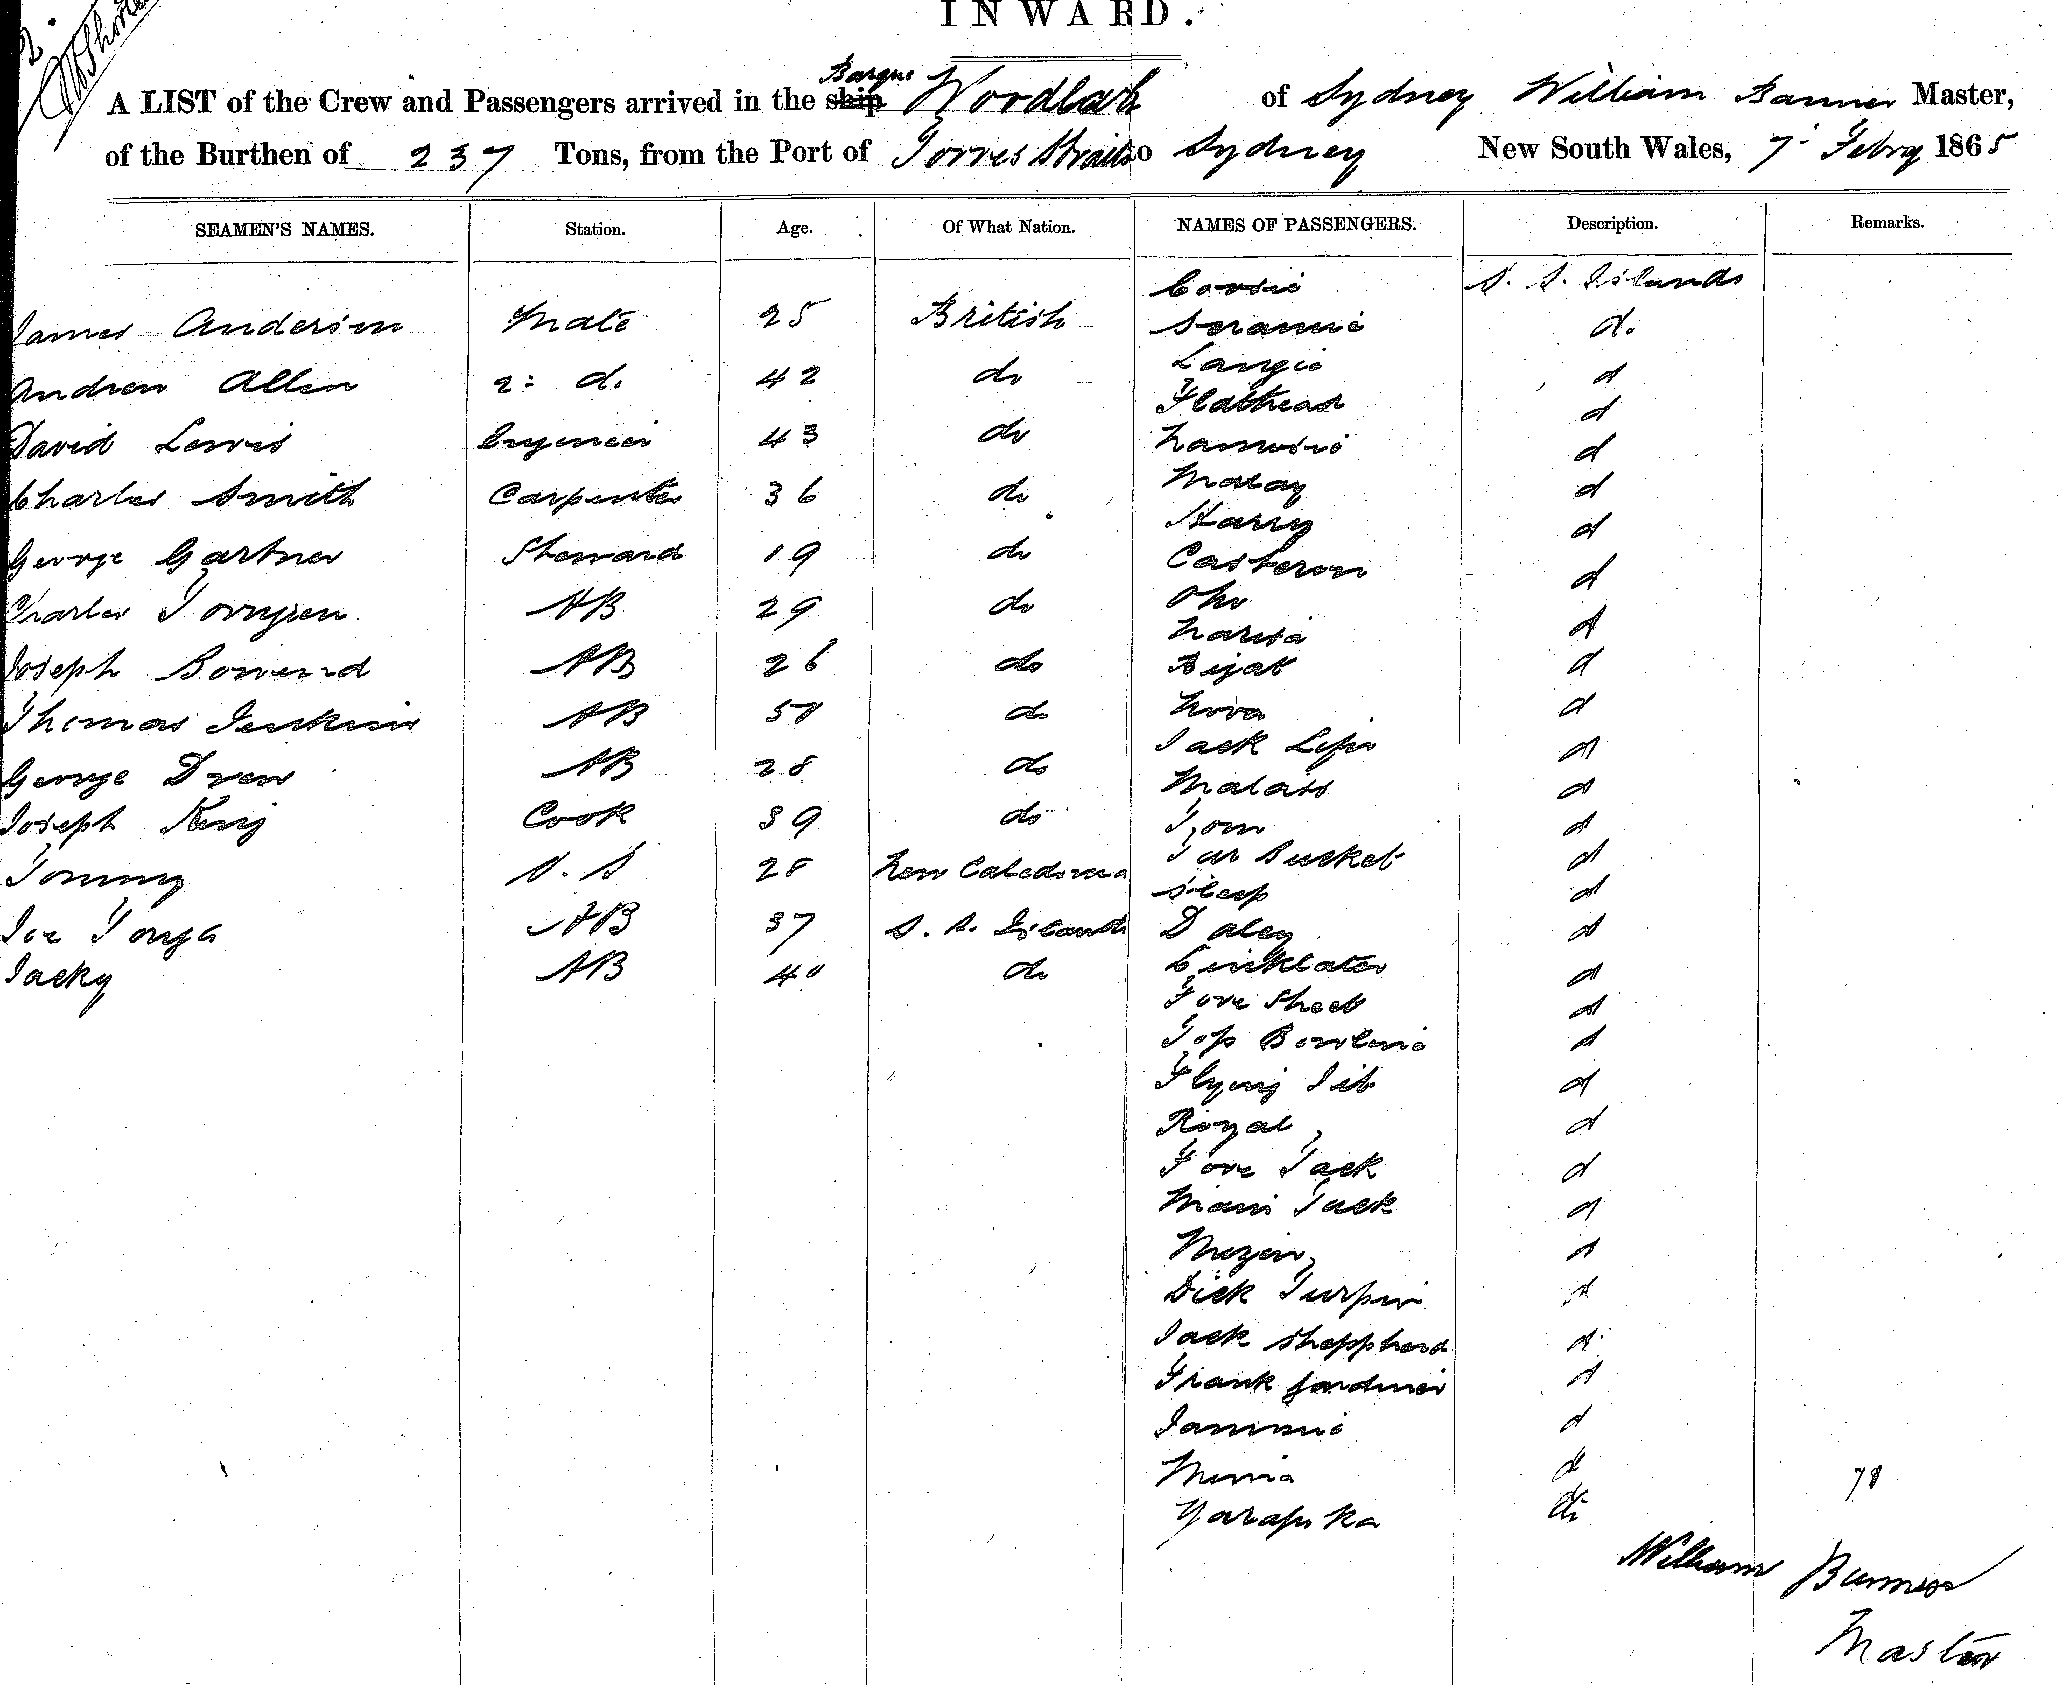 INWARD.
A LIST of the Crew and Passengers arrived in the ship Barque Woodlark of Sydney William Banner Master,
of the Burthen of 237 Tons, from the Port of Torres Straits to Sydney New South Wales, 7 Febry 1865
SEAMEN'S NAMES. Station. Age. Of What Nation. NAMES OF PASSENGERS. Description. Remarks.
S. S. Islands
James Anderson Mate 25 British
d.
Langie
Andrew Allen 2: d. 42 do d
Flathead d
David Lewis Engineer 43 do d
Malay d
Charles Smith Carpenter 36 do
Harry d
George Gartner Steward 19 do
Casteron d
Charles AB 29 do Oho
d
Joseph AB 26 do Bijat d
Thomas Jenkins AB 50 do d
Jack Lips d
George Drew AB 28 do
Malass d
Joseph King Cook 39 do Tom d
Tar Bucket d
Tommy O. S 28 New Caledonia
Sleep d
Joe Tonga AB 37 S. S. Islands Daley d
Jacky AB 40 do Linklater d
Fore Sheet d
Top Bowline d
Flying Jib d
Royal d
Fore Tack d
Main Tack d
Mizen d
Dick Turpin d
Jack Sheppherd d
Frank Gardiner d
Jammie d
d 78
Yarapuka do
William Banner
Master